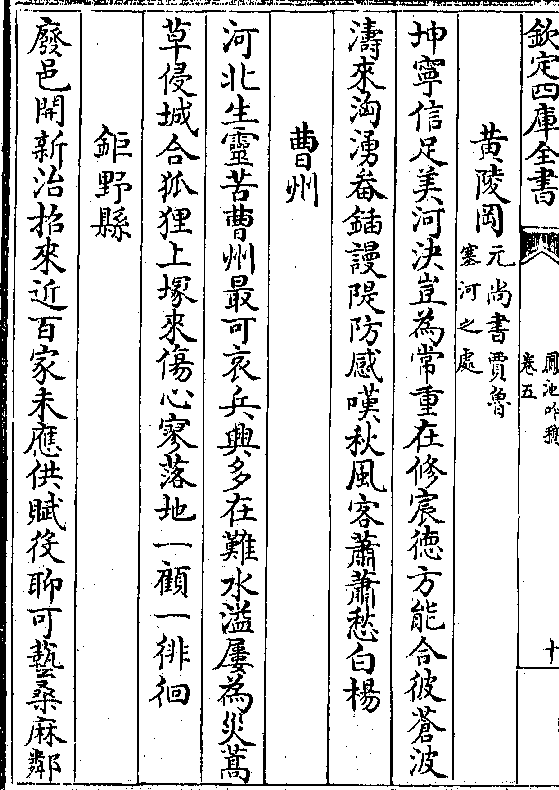 欽定四庫全書
鳳池吟稿
卷五
十
黄陵岡元尚書賈魯
塞河之處
坤寧信足美河決豈為常重在修宸徳方能合彼蒼波
濤來洶湧畚鍤謾隄防感嘆秋風客蕭蕭愁白楊
曹州
河北生靈苦曹州最可哀兵興多在難水溢屢為災蒿
草侵城合狐狸上塚來傷心寥落地一顧一徘徊
鉅野縣
廢邑開新治招來近百家未應供賦役聊可藝桑麻鄰